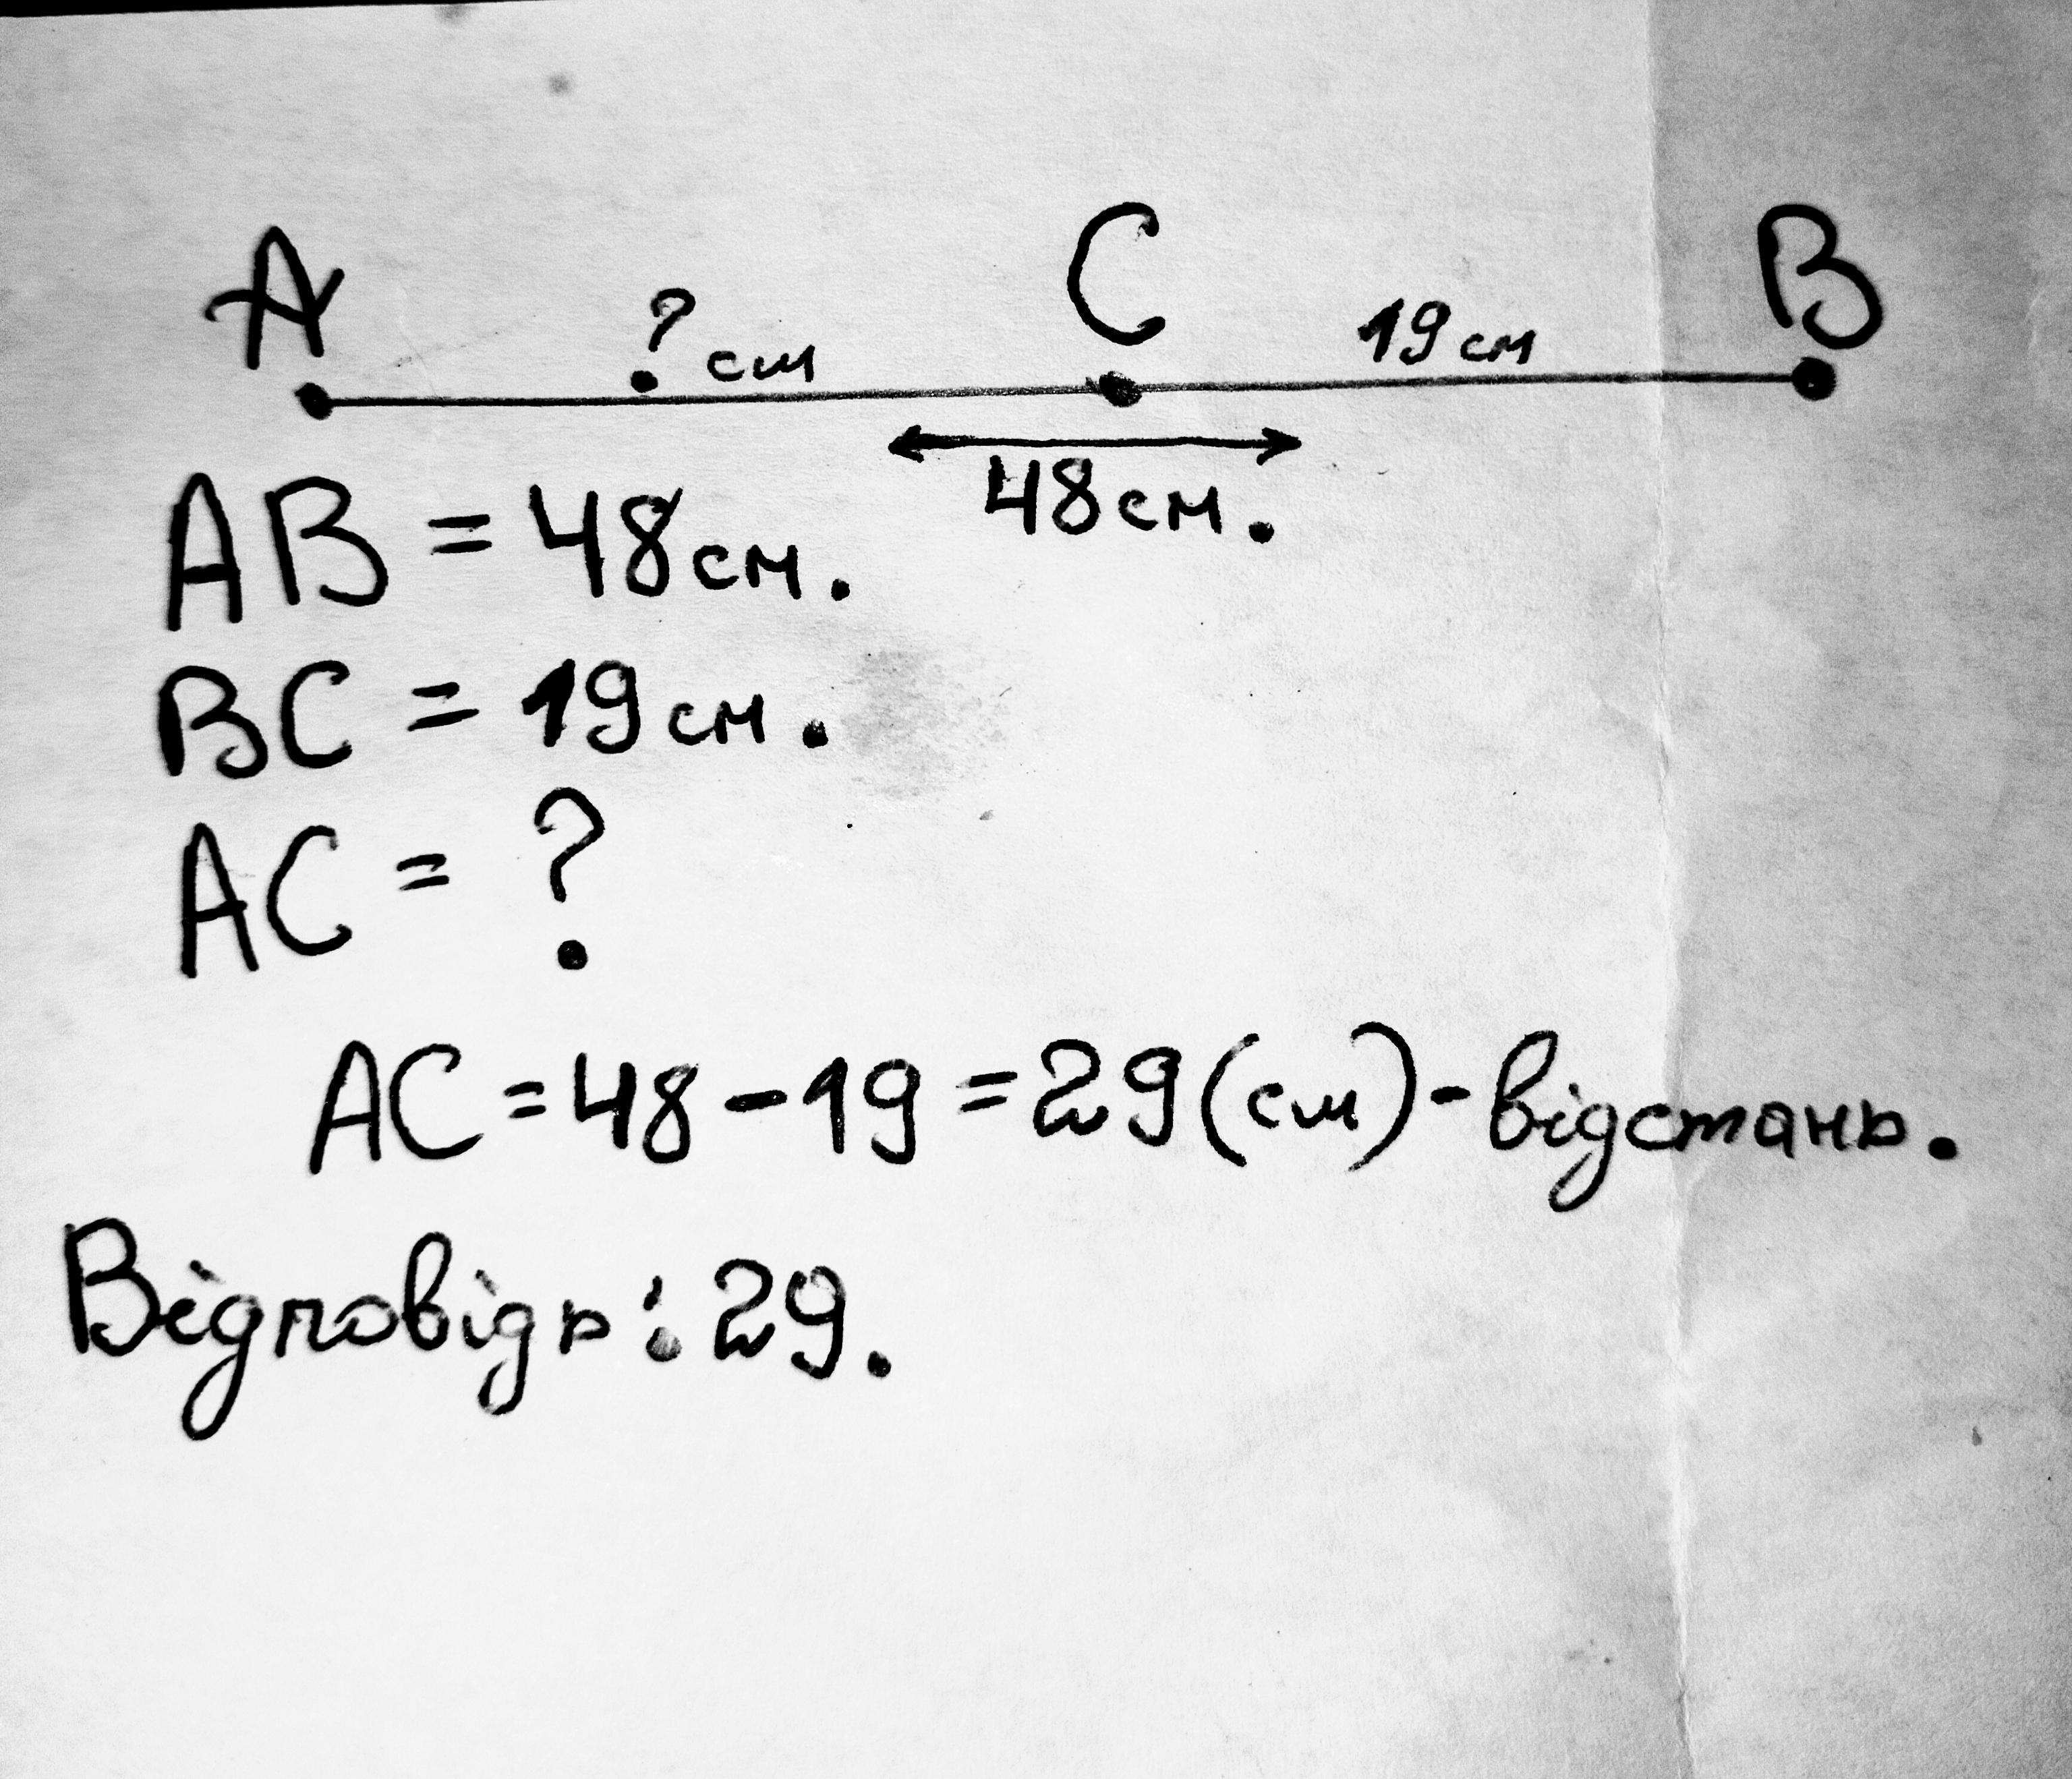 A C B
? см 19 см
48 см.
AB = 48 см.
BC = 19 см.
AC = ?
AC = 48 - 19 = 29 (см) - відстань.
Відповідь: 29.